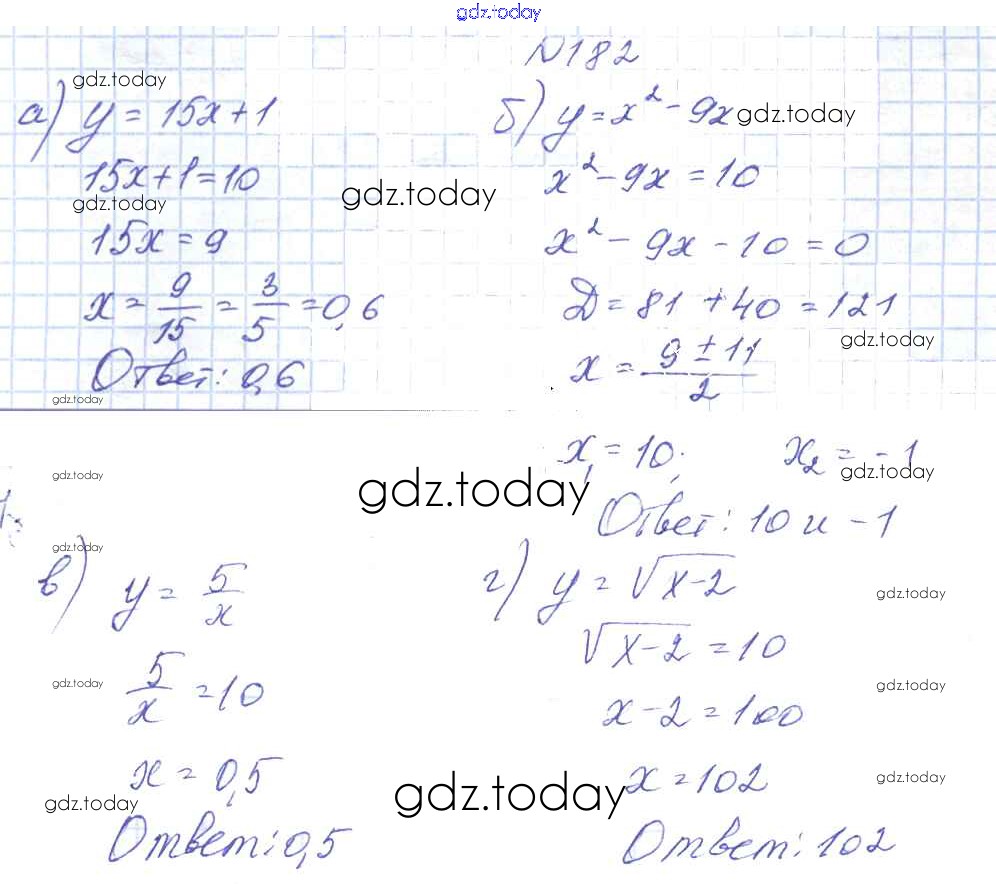 gdz.today
N182
gdz.today
а) y = 15x+1
15x+1=10
gdz.today
15x = 9
x = 9/15 = 3/5 = 0,6
Ответ: 0,6
gdz.today
gdz.today
б) y = x² - 9x gdz.today
x² - 9x = 10
x² - 9x - 10 = 0
Д = 81 + 40 = 121
gdz.today
x = (9 ± 11)/2
x₁ = 10; x₂ = -1
gdz.today
Ответ: 10 и -1
gdz.today
gdz.today
gdz.today
в) y = 5/x
gdz.today
5/x = 10
x = 0,5
gdz.today
Ответ: 0,5
г) y = √x-2
gdz.today
√x-2 = 10
gdz.today
x-2 = 100
gdz.today
x = 102
gdz.today
Ответ: 102